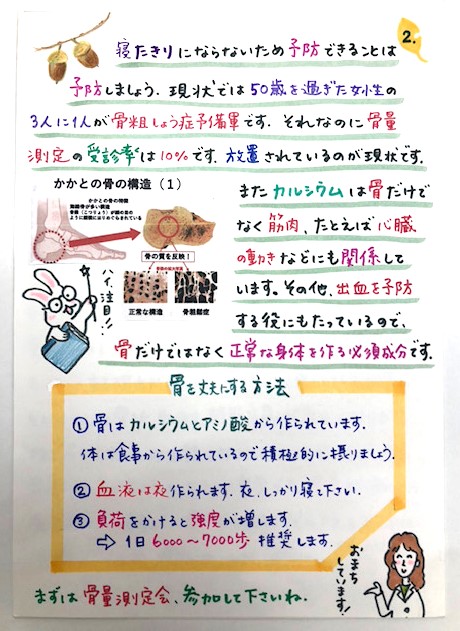 2.
寝たきりにならないため予防できることは
予防しましょう. 現状では50歳を過ぎた女性の
3人に1人が骨粗しょう症予備軍です. それなのに骨量
測定の受診率は10%です. 放置されているのが現状です.
かかとの骨の構造(1)
かかとの骨の特徴
海綿骨が多い構造
骨梁(こつりょう)が網の目の
ように緻密にはりめぐらされている
骨の質を反映!
正常な構造
骨粗鬆症
ハイ、注目!!
またカルシウムは骨だけで
なく筋肉、たとえば心臓
の動きなどにも関係して
います。その他、出血を予防
する役にもたっているので、
骨だけではなく正常な身体を作る必須成分です.
骨を丈夫にする方法
① 骨はカルシウムとアミノ酸から作られています.
体は食事から作られているので積極的に摂りましょう.
② 血液は夜作られます. 夜、しっかり寝て下さい.
③ 負荷をかけると強度が増します.
⇨ 1日6000〜7000歩 推奨します.
おまちしています!
まずは骨量測定会、参加して下さいね.